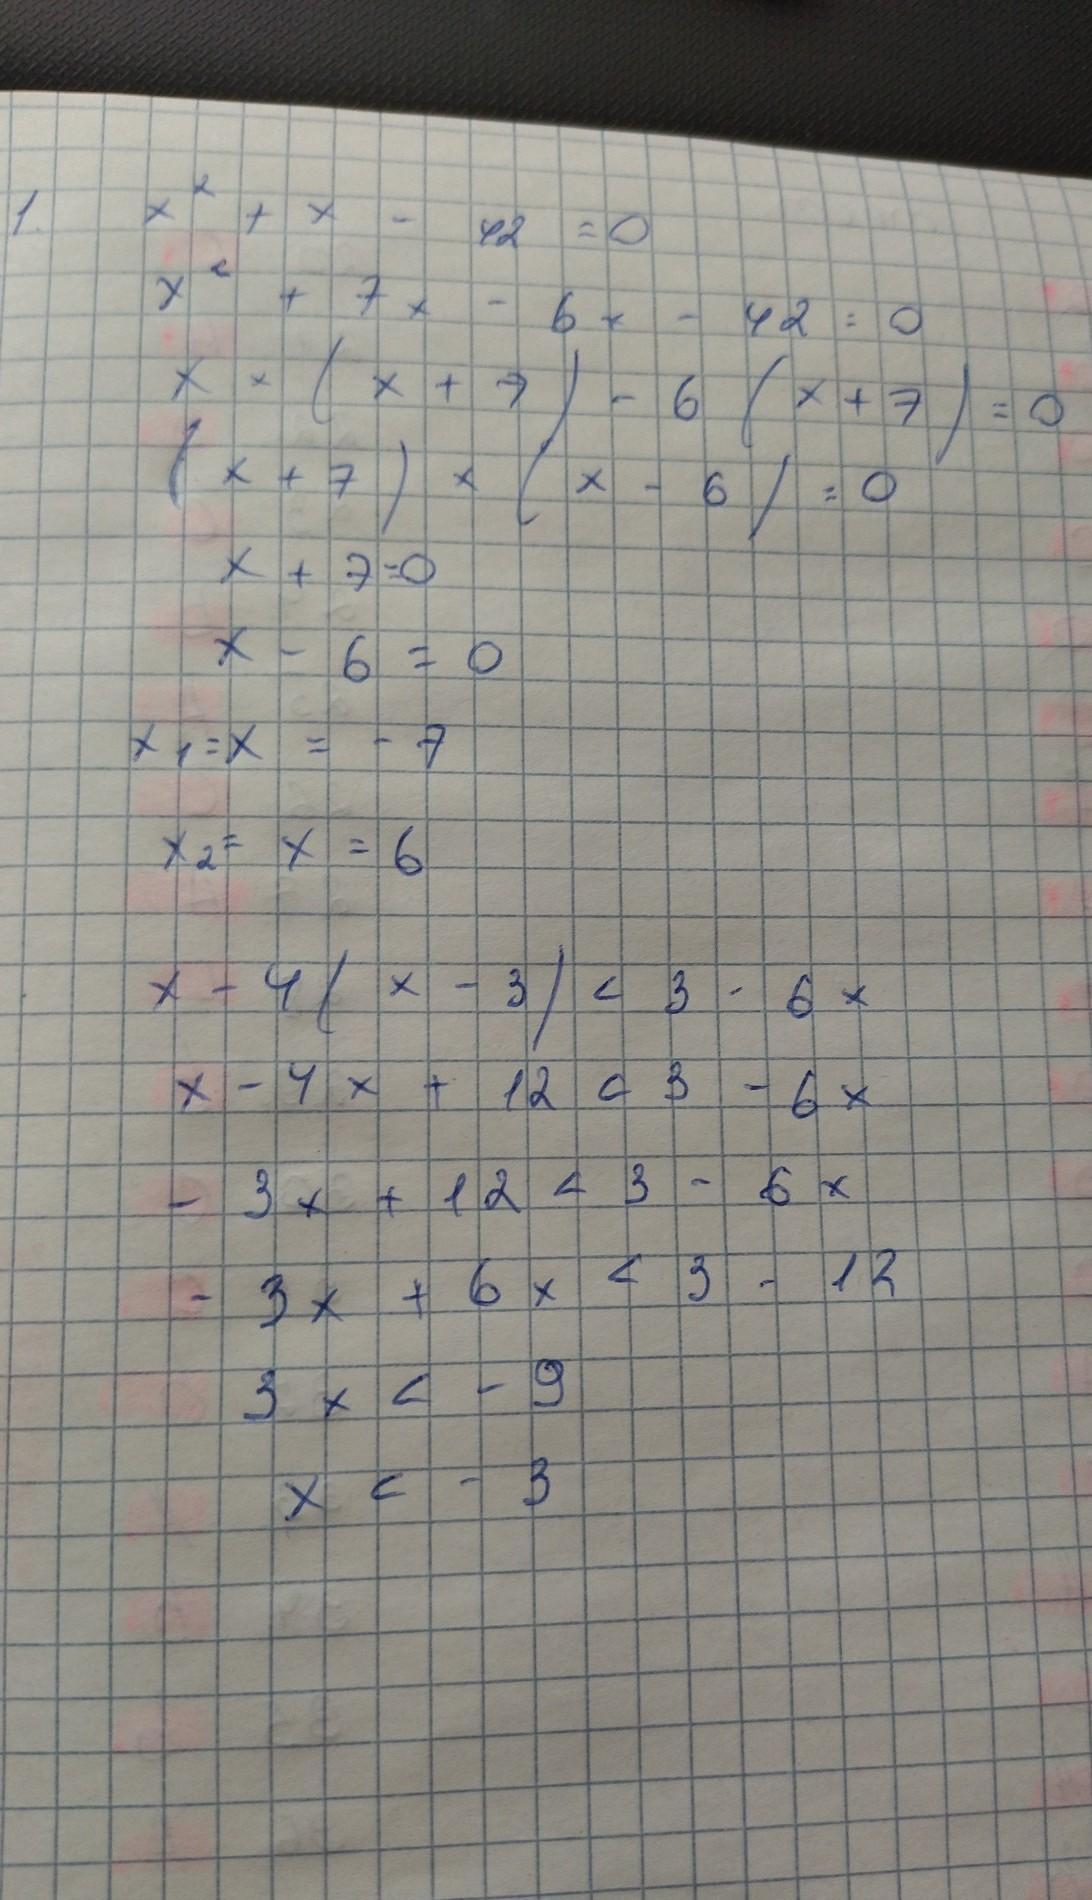 1. x² + x - 42 = 0
x² + 7x - 6x - 42 = 0
x × (x + 7) - 6 (x + 7) = 0
(x + 7) × (x - 6) = 0
x + 7 = 0
x - 6 = 0
x₁ = x = - 7
x₂ = x = 6
x - 4(x - 3) < 3 - 6x
x - 4x + 12 < 3 - 6x
- 3x + 12 < 3 - 6x
- 3x + 6x < 3 - 12
3x < - 9
x < - 3